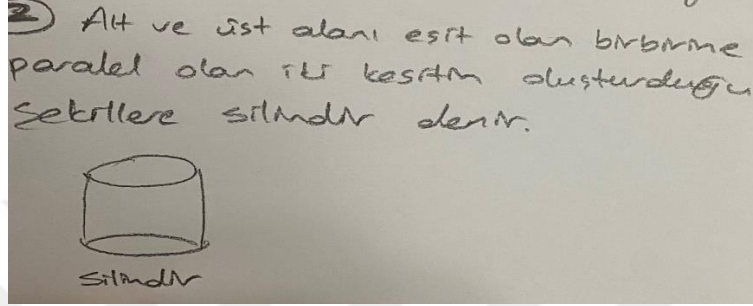 2) Alt ve üst alanı eşit olan birbirine
paralel olan iki kesitin oluşturduğu
şekillere silindir denir.
silindir